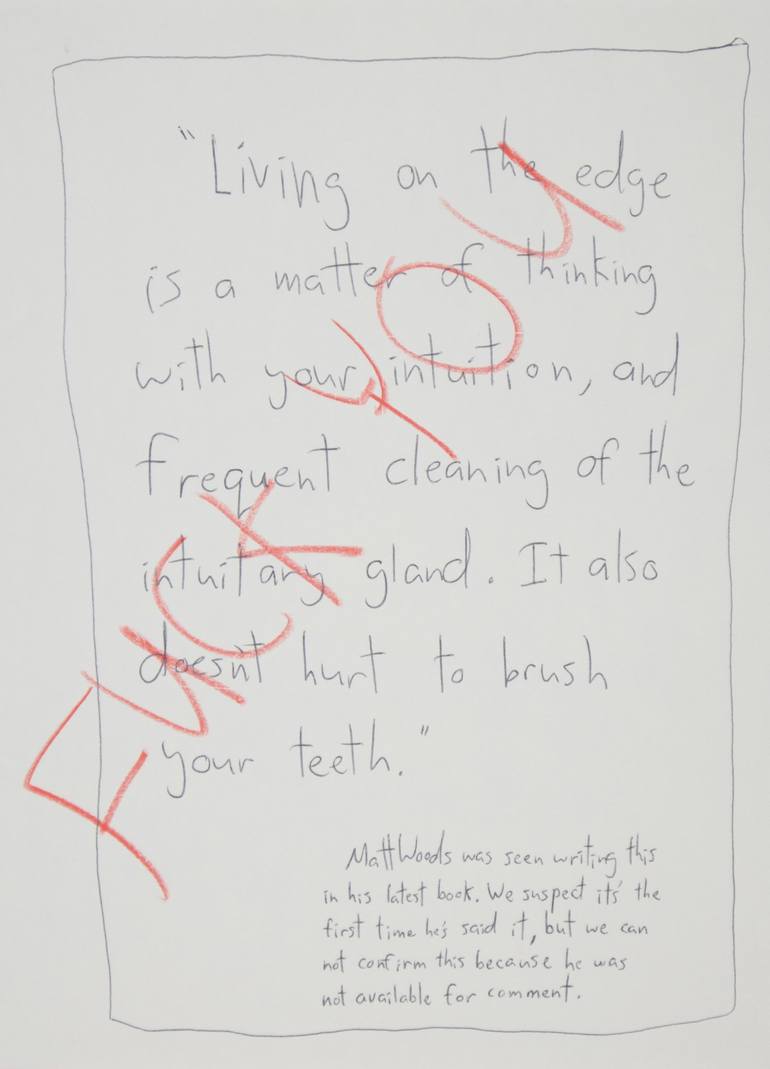 "Living on the edge
is a matter of thinking
with your intuition, and
frequent cleaning of the
intuitary gland. It also
doesn't hurt to brush
your teeth."
FUCK
yOU
Matt Woods was seen writing this
in his latest book. We suspect its' the
first time he's said it, but we can
not confirm this because he was
not available for comment.